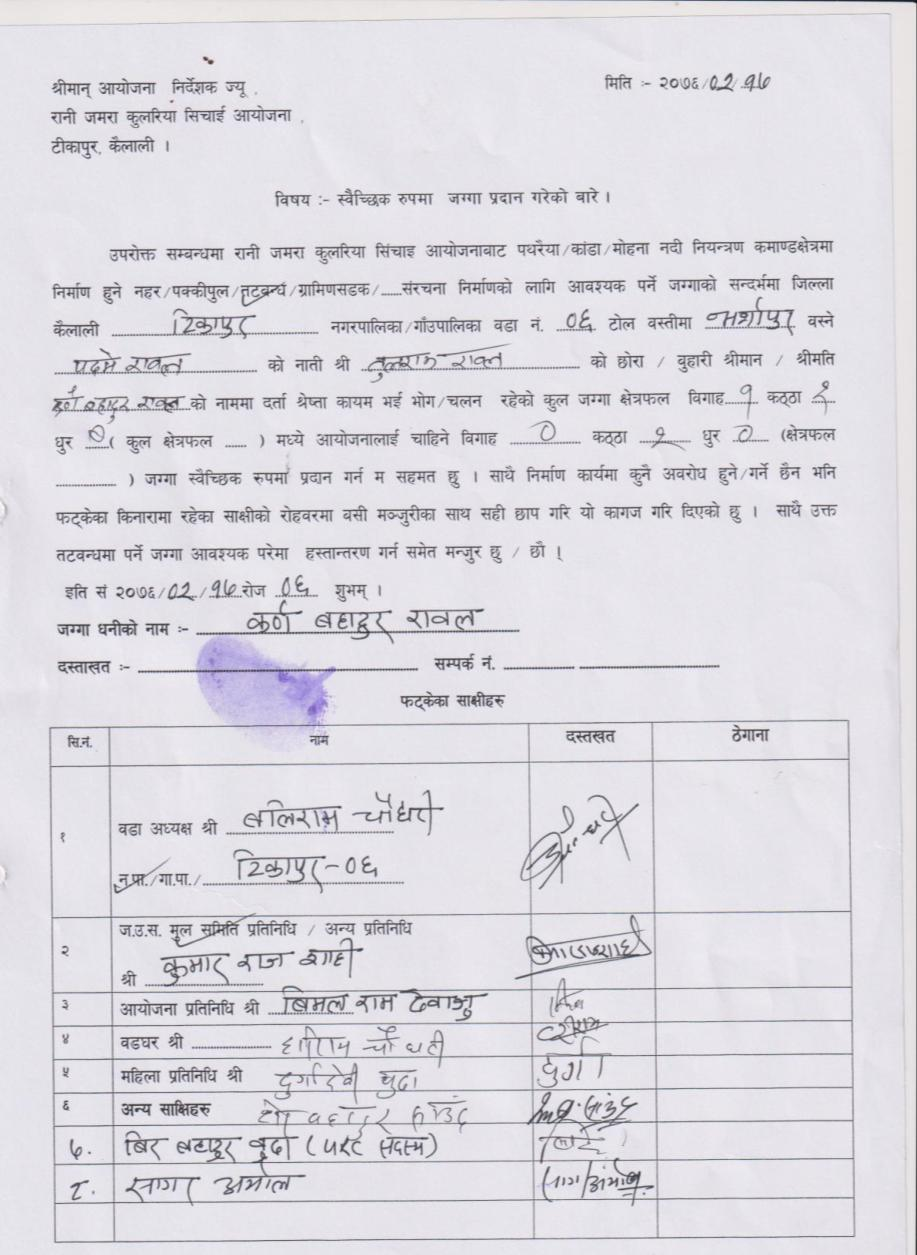 श्रीमान् आयोजना निर्देशक ज्यू,
मिति :- २०७६/02/१७
रानी जमरा कुलरिया सिचाई आयोजना,
टीकापुर, कैलाली ।
विषय :- स्वैच्छिक रुपमा जग्गा प्रदान गरेको बारे ।
उपरोक्त सम्बन्धमा रानी जमरा कुलरिया सिंचाइ आयोजनावाट पथरैया/कांडा/मोहना नदी नियन्त्रण कमाण्डक्षेत्रमा
निर्माण हुने नहर/पक्कीपुल/तटबन्ध/ग्रामिणसडक/......संरचना निर्माणको लागि आवश्यक पर्ने जग्गाको सन्दर्भमा जिल्ला
कैलाली टिकापुर नगरपालिका/गाँउपालिका वडा नं. ०६ टोल वस्तीमा वस्ने
पदमे रावल को नाती श्री रावल को छोरा / वुहारी श्रीमान / श्रीमति
कर्ण बहादुर रावल को नाममा दर्ता श्रेष्ता कायम भई भोग/चलन रहेको कुल जग्गा क्षेत्रफल विगाह १ कठ्ठा २
धुर ( कुल क्षेत्रफल ...... ) मध्ये आयोजनालाई चाहिने विगाह 0 कठ्ठा २ धुर 0 (क्षेत्रफल
............... ) जग्गा स्वैच्छिक रुपमा प्रदान गर्न म सहमत छु । साथै निर्माण कार्यमा कुनै अवरोध हुने/गर्ने छैन भनि
फट्केका किनारामा रहेका साक्षीको रोहवरमा वसी मञ्जुरीका साथ सही छाप गरि यो कागज गरि दिएको छु । साथै उक्त
तटवन्धमा पर्ने जग्गा आवश्यक परेमा हस्तान्तरण गर्न समेत मन्जुर छु / छौ ।
इति सं २०७६/02/१७ रोज ०६ शुभम् ।
जग्गा धनीको नाम :- कर्ण बहादुर रावल
दस्ताखत :- सम्पर्क नं.
फट्केका साक्षीहरु
सि.नं. नाम दस्तखत ठेगाना
१ वडा अध्यक्ष श्री बलिराम चौधरी
न.पा./गा.पा./ टिकापुर-०६
ज.उ.स. मुल समिति प्रतिनिधि / अन्य प्रतिनिधि
२ श्री कुमार राज शाही
३ आयोजना प्रतिनिधि श्री बिमल राम देवाजु
४ वडघर श्री चौधरी
५ महिला प्रतिनिधि श्री दुर्गादेवी बुढा दुर्गा
६ अन्य साक्षिहरु बहादुर
७. बिर बहादुर बुढा ( सदस्य)
८. सागर